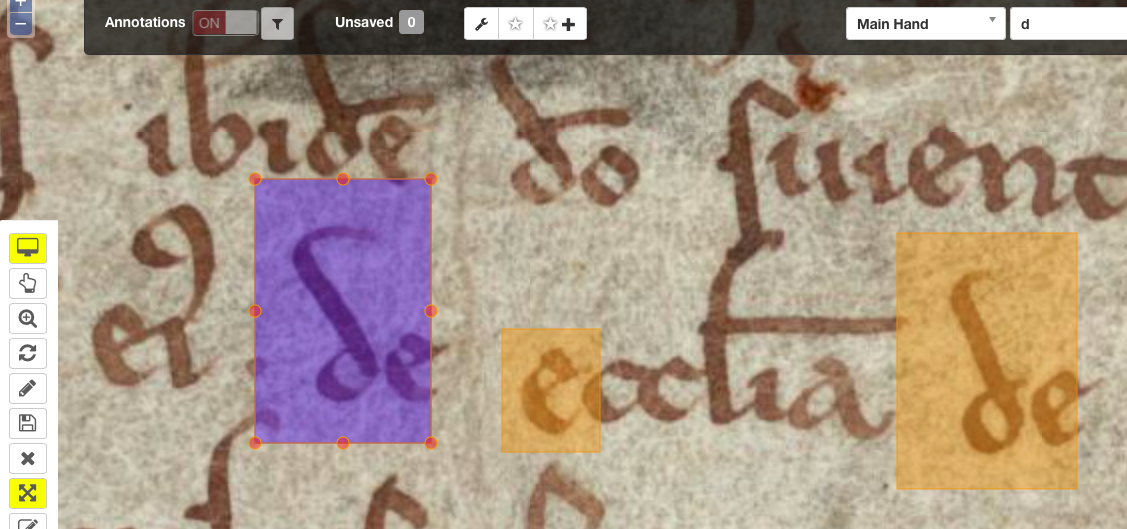 Annotations ON Unsaved 0 Main Hand d
ibidē do fuient
et de ecclia de